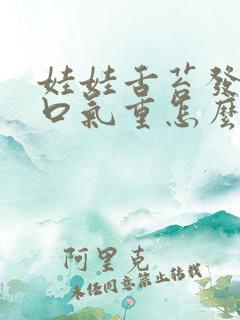 娃娃舌苔發
口氣重怎麼
阿里克
未经同意禁止转载